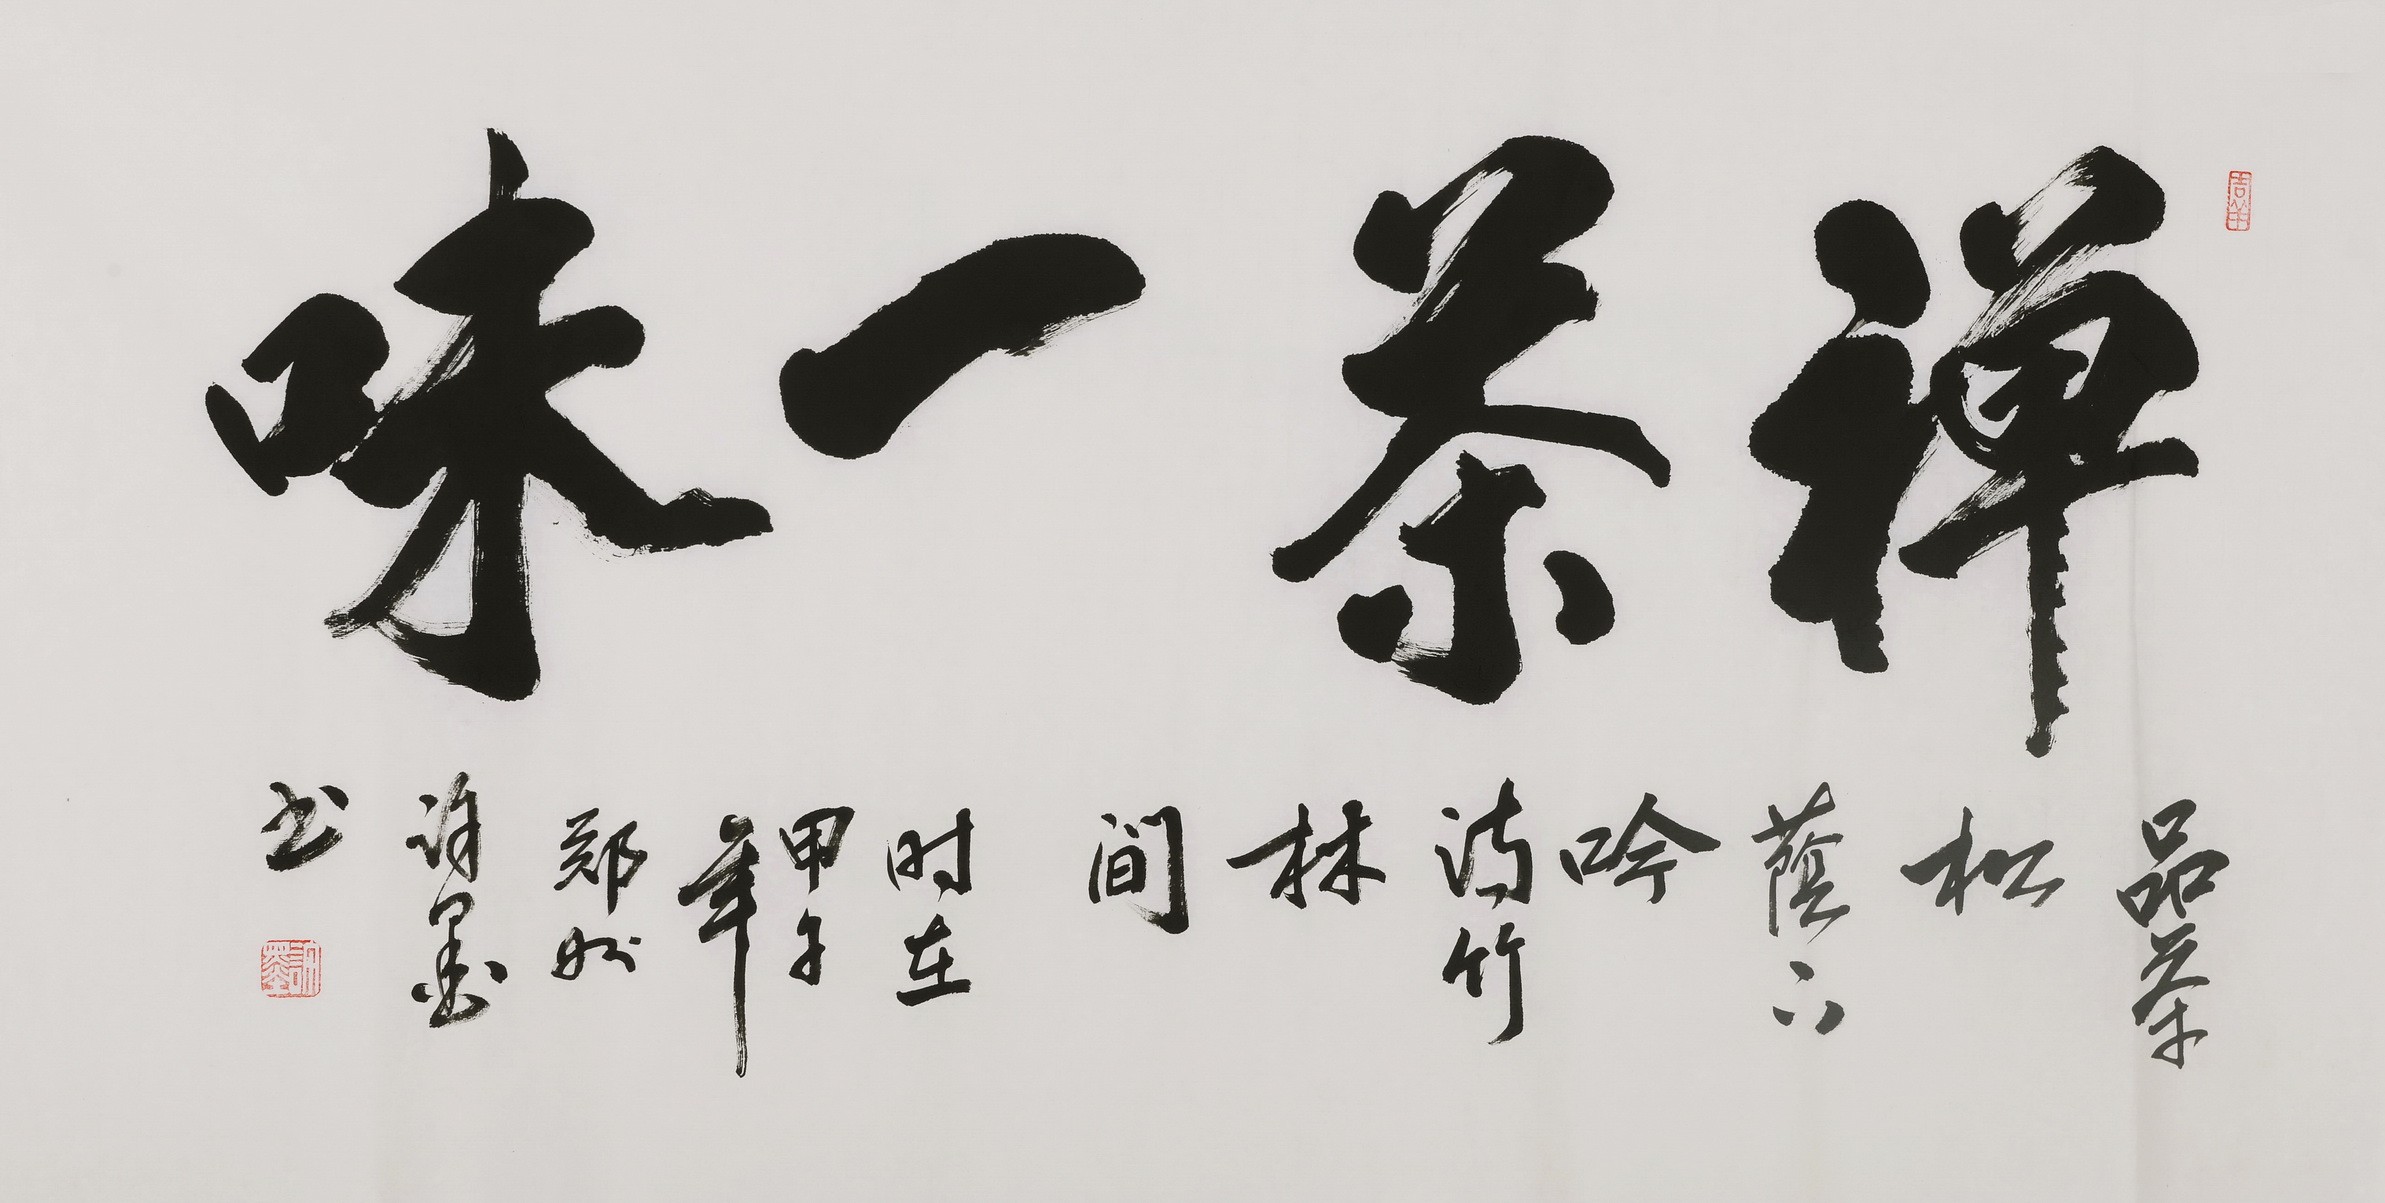 禅茶一味
品茶
松
蔭下
吟
诗竹
林
间
时在
甲午
年
郑州
许墨
书
許墨